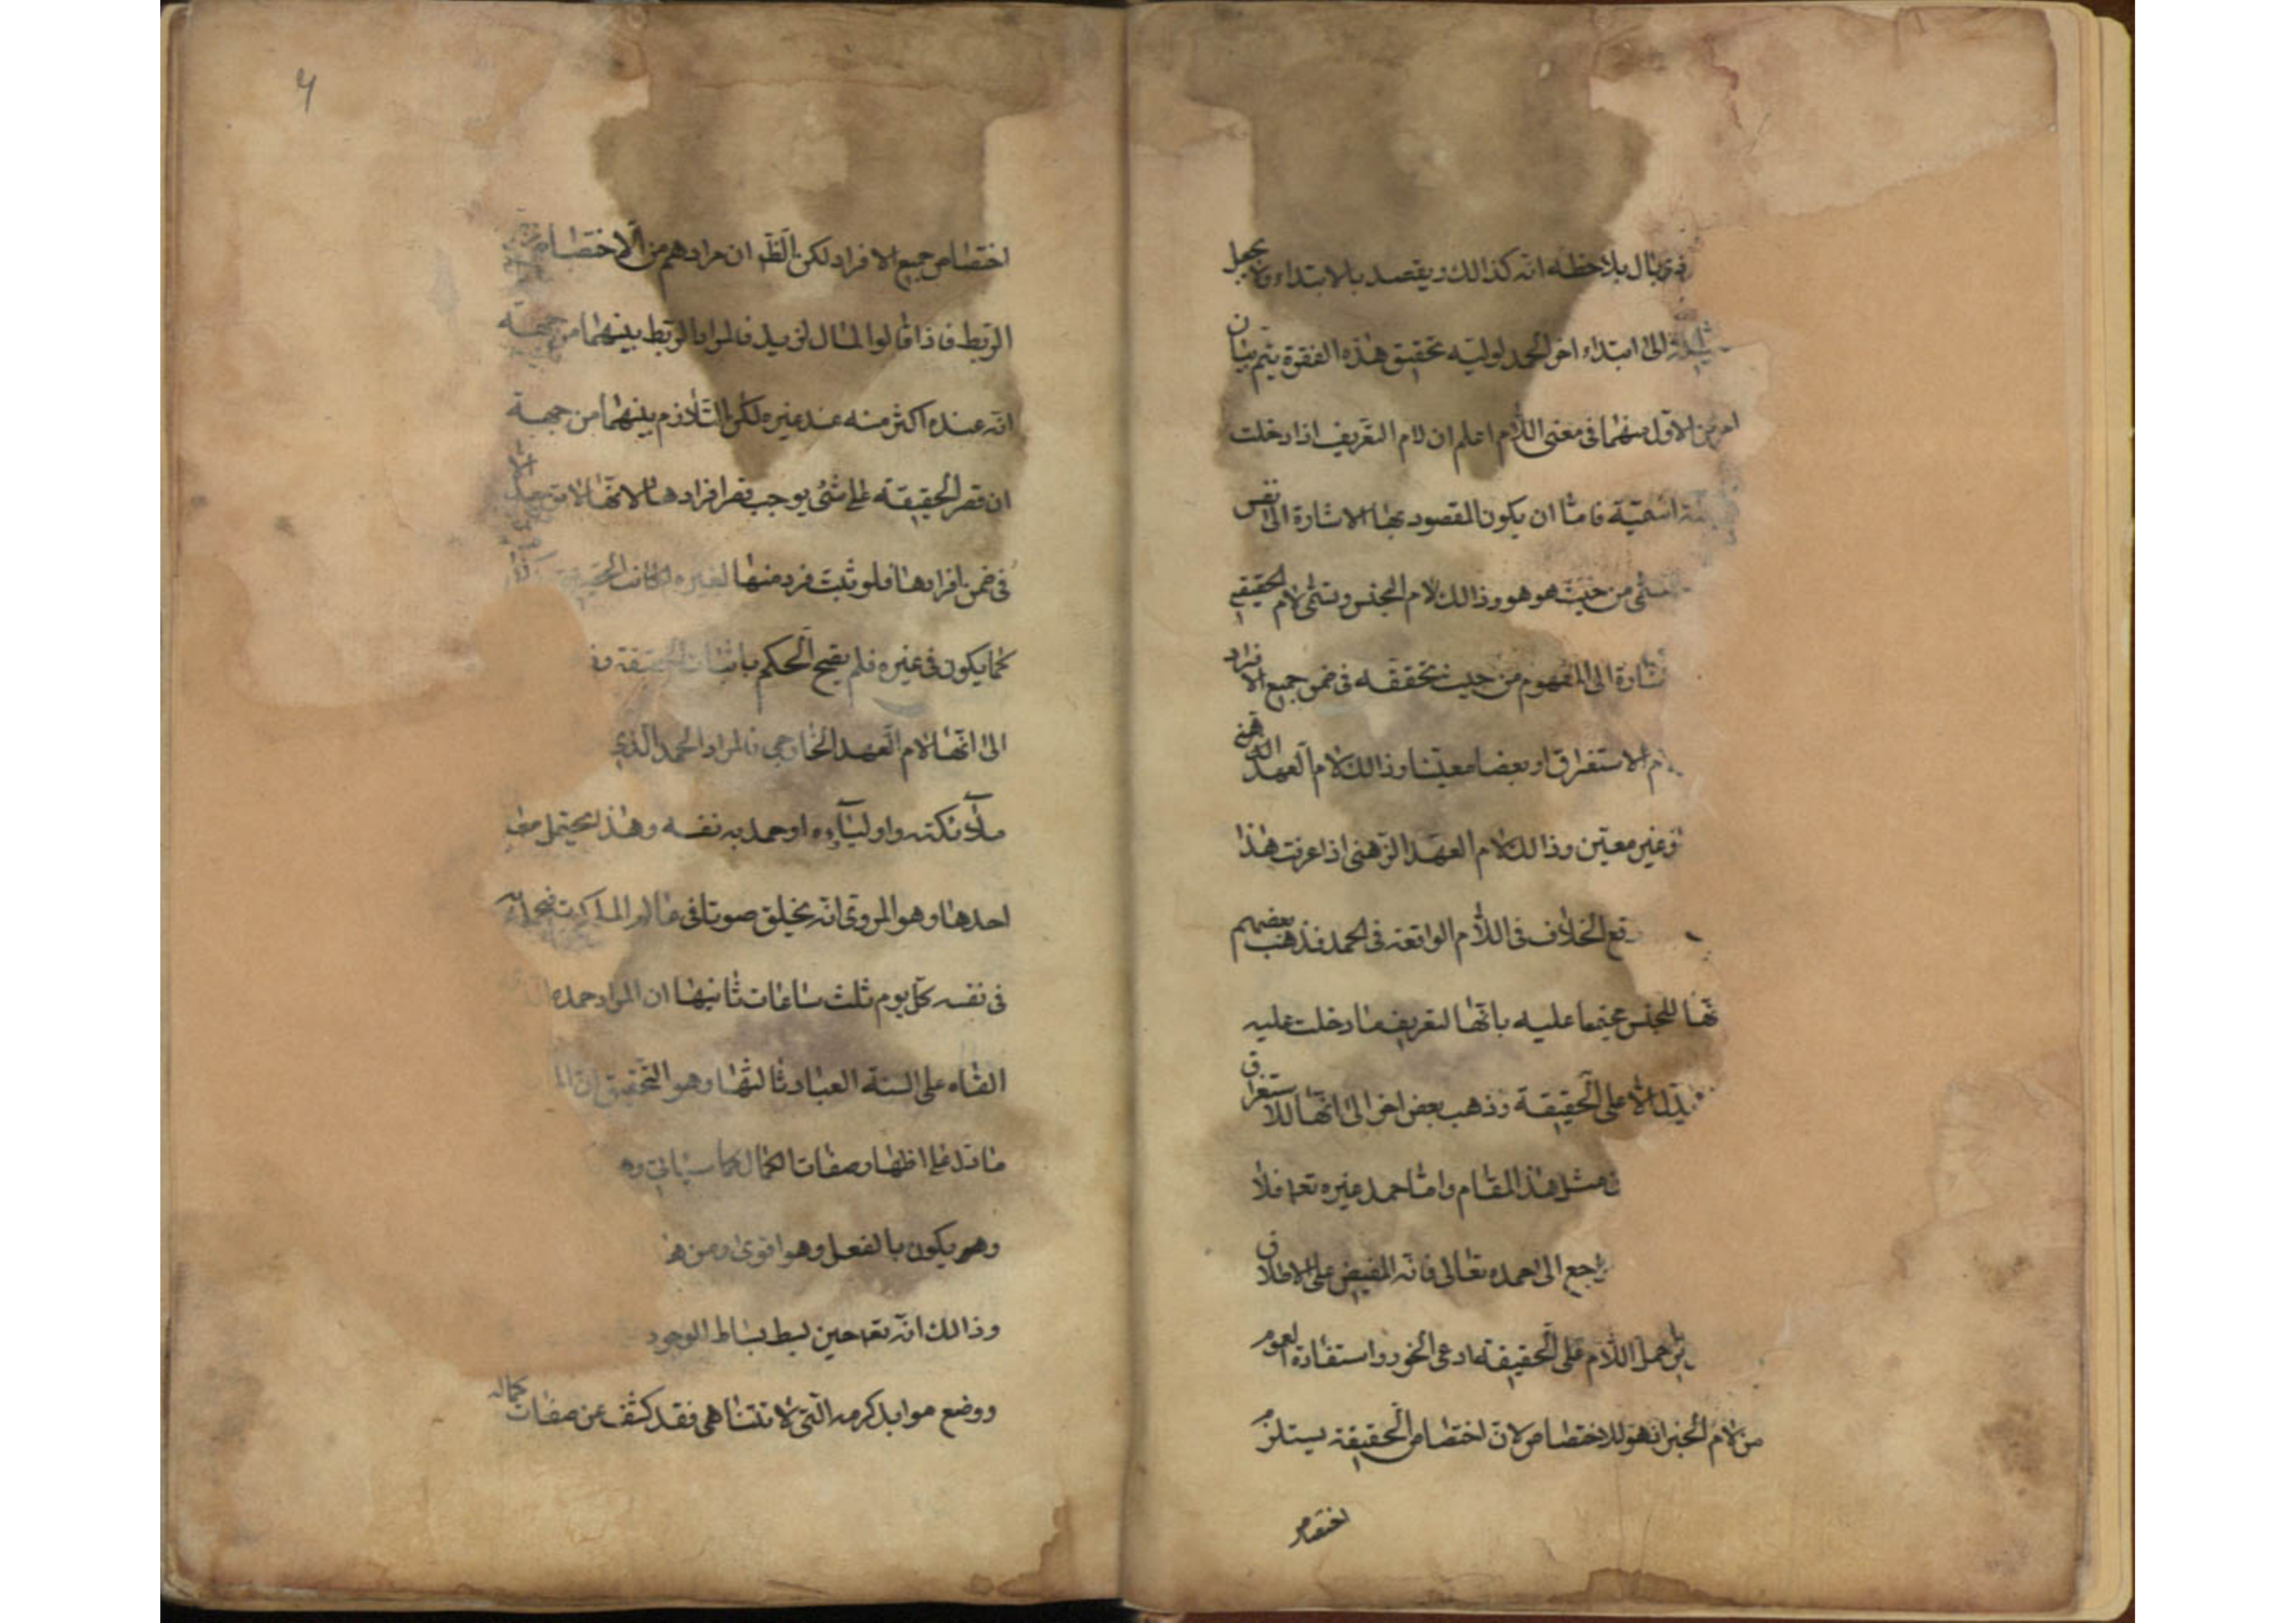 ذی بال بملاحظة انه كذالك ويقصد بالابتداء ولا يجعل
الى ابتداء اخر الحمد لوليه تحقيق هذه الفقرة يتم ببيان
امرين الاول منهما فى معنى اللام اعلم ان لام التعريف اذا دخلت
اسميّة فامّا ان يكون المقصود بها الاشارة الى نفس
من حيث هو هو وذالك لام الجنس وتسمّى لام الحقيقة
الى المفهوم من حيث تحققه فى ضمن جميع الافراد
لام الاستغراق او بعضا معيّنا وذالك لام العهد
او غير معيّن وذالك لام العهد الذهنى اذا عرفت هذا
وقع الخلاف فى اللام الواقعة فى الحمد فذهب بعضهم
للجنس محتجا عليه بانّها لتعريف ما دخلت عليه
الّا على الحقيقة وذهب بعض اخر الى انّها للاستغراق
فى مثل هذا المقام وامّا حمد غيره تعا فلا
راجع الى حمده تعالى فانّه المفيض على الاطلاق
حمل اللام على الحقيقة ادعى واستفادة العموم
من لام الخبر اذ هو للاختصاص لانّ اختصاص الحقيقة يستلزم
اختصاص
۴
اختصاص جميع الافراد لكن الظّ ان مرادهم من الاختصاص
الربط فاذا قالوا المال لزيد فالمراد الربط بينهما من جهة
انّه عنده اكثر منه عند غيره لكن التلازم بينهما من جهة
ان قصر الحقيقة على شئ يوجب قصر افرادها لانّها لا
فى ضمن افرادها فلو ثبت فرد منها لغيره لكانت الحقيقة
كما يكون فى غيره فلم يصح الحكم باثبات الحقيقة
الى انّها لام العهد الخارجى فالمراد الحمد الذى
ملآئكته واوليآؤه او حمد به نفسه وهذا يحتمل
احدها وهو المروى انّه يخلق صوتا فى عالم الملكوت
فى نفسه كلّ يوم ثلث ساعات ثانيها ان المراد حمده
القاه على السنة العباد ثالثها وهو التحقيق انّ
ما دلّ على اظهار صفات الكمال كما سيأتى
وهو يكون بالفعل وهو اقوى ومن
وذالك انّه تعا حين بسط بساط الوجود
ووضع موايد كرمه الّتى لا تتناهى فقد كشف عن صفات كماله